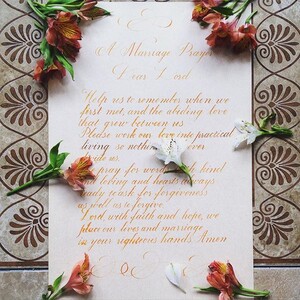 A Marriage Prayer
Dear Lord
Help us to remember when we
first met, and the abiding love
that grew between us.
Please work our love into practical
living so nothing ever
divide us.
pray for words kind
and loving and hearts always
ready to ask for forgiveness
as well as to forgive.
Lord with faith and hope, we
place our lives and marriage
in your righteous hands. Amen